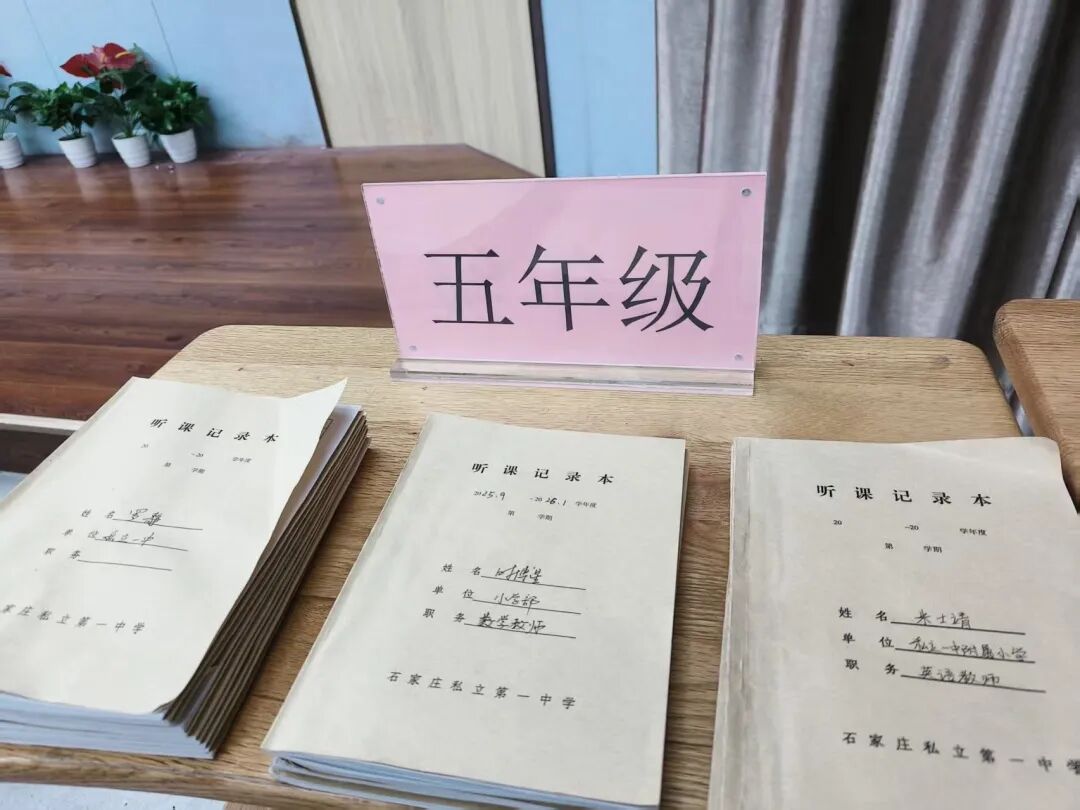 五年级
听课记录本
20 -20 学年度
第 学期
姓名
单位 私立一中
职务
家庄私立第一中学
听课记录本
2025.9 -2026.1 学年度
第 学期
姓名
单位 小学部
职务 数学教师
石家庄私立第一中学
听课记录本
20 -20 学年度
第 学期
姓名 米士靖
单位 私立一中附属小学
职务 英语教师
石家庄私立第一中学